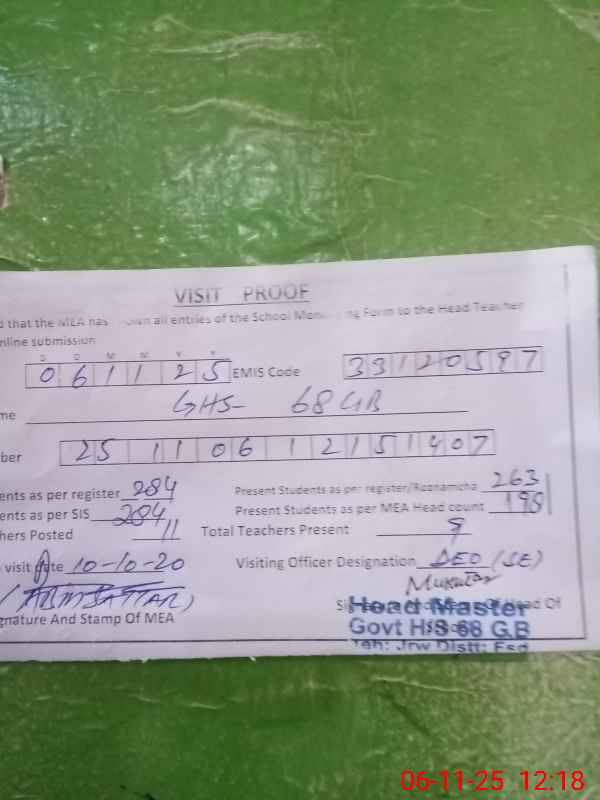 VISIT PROOF
d that the MEA has shown all entries of the School Monitoring Form to the Head Teacher
nline submission
D D M M Y Y
0 6 1 1 2 5 EMIS Code 3 3 1 2 0 5 9 7
me GHS- 68 GB
ber 2 5 1 1 0 6 1 2 1 5 1 4 0 7
ents as per register 284 Present Students as per register/Roznamcha 263
ents as per SIS 284 Present Students as per MEA Head count 198
hers Posted 11 Total Teachers Present 9
visit date 10-10-20 Visiting Officer Designation DEO (SE)
(ABDUSSATTAR) Mukhtar
gnature And Stamp Of MEA Head Of
Head Master
Govt H/S 68 G.B
Teh: Jrw Distt: Fsd
06-11-25 12:18